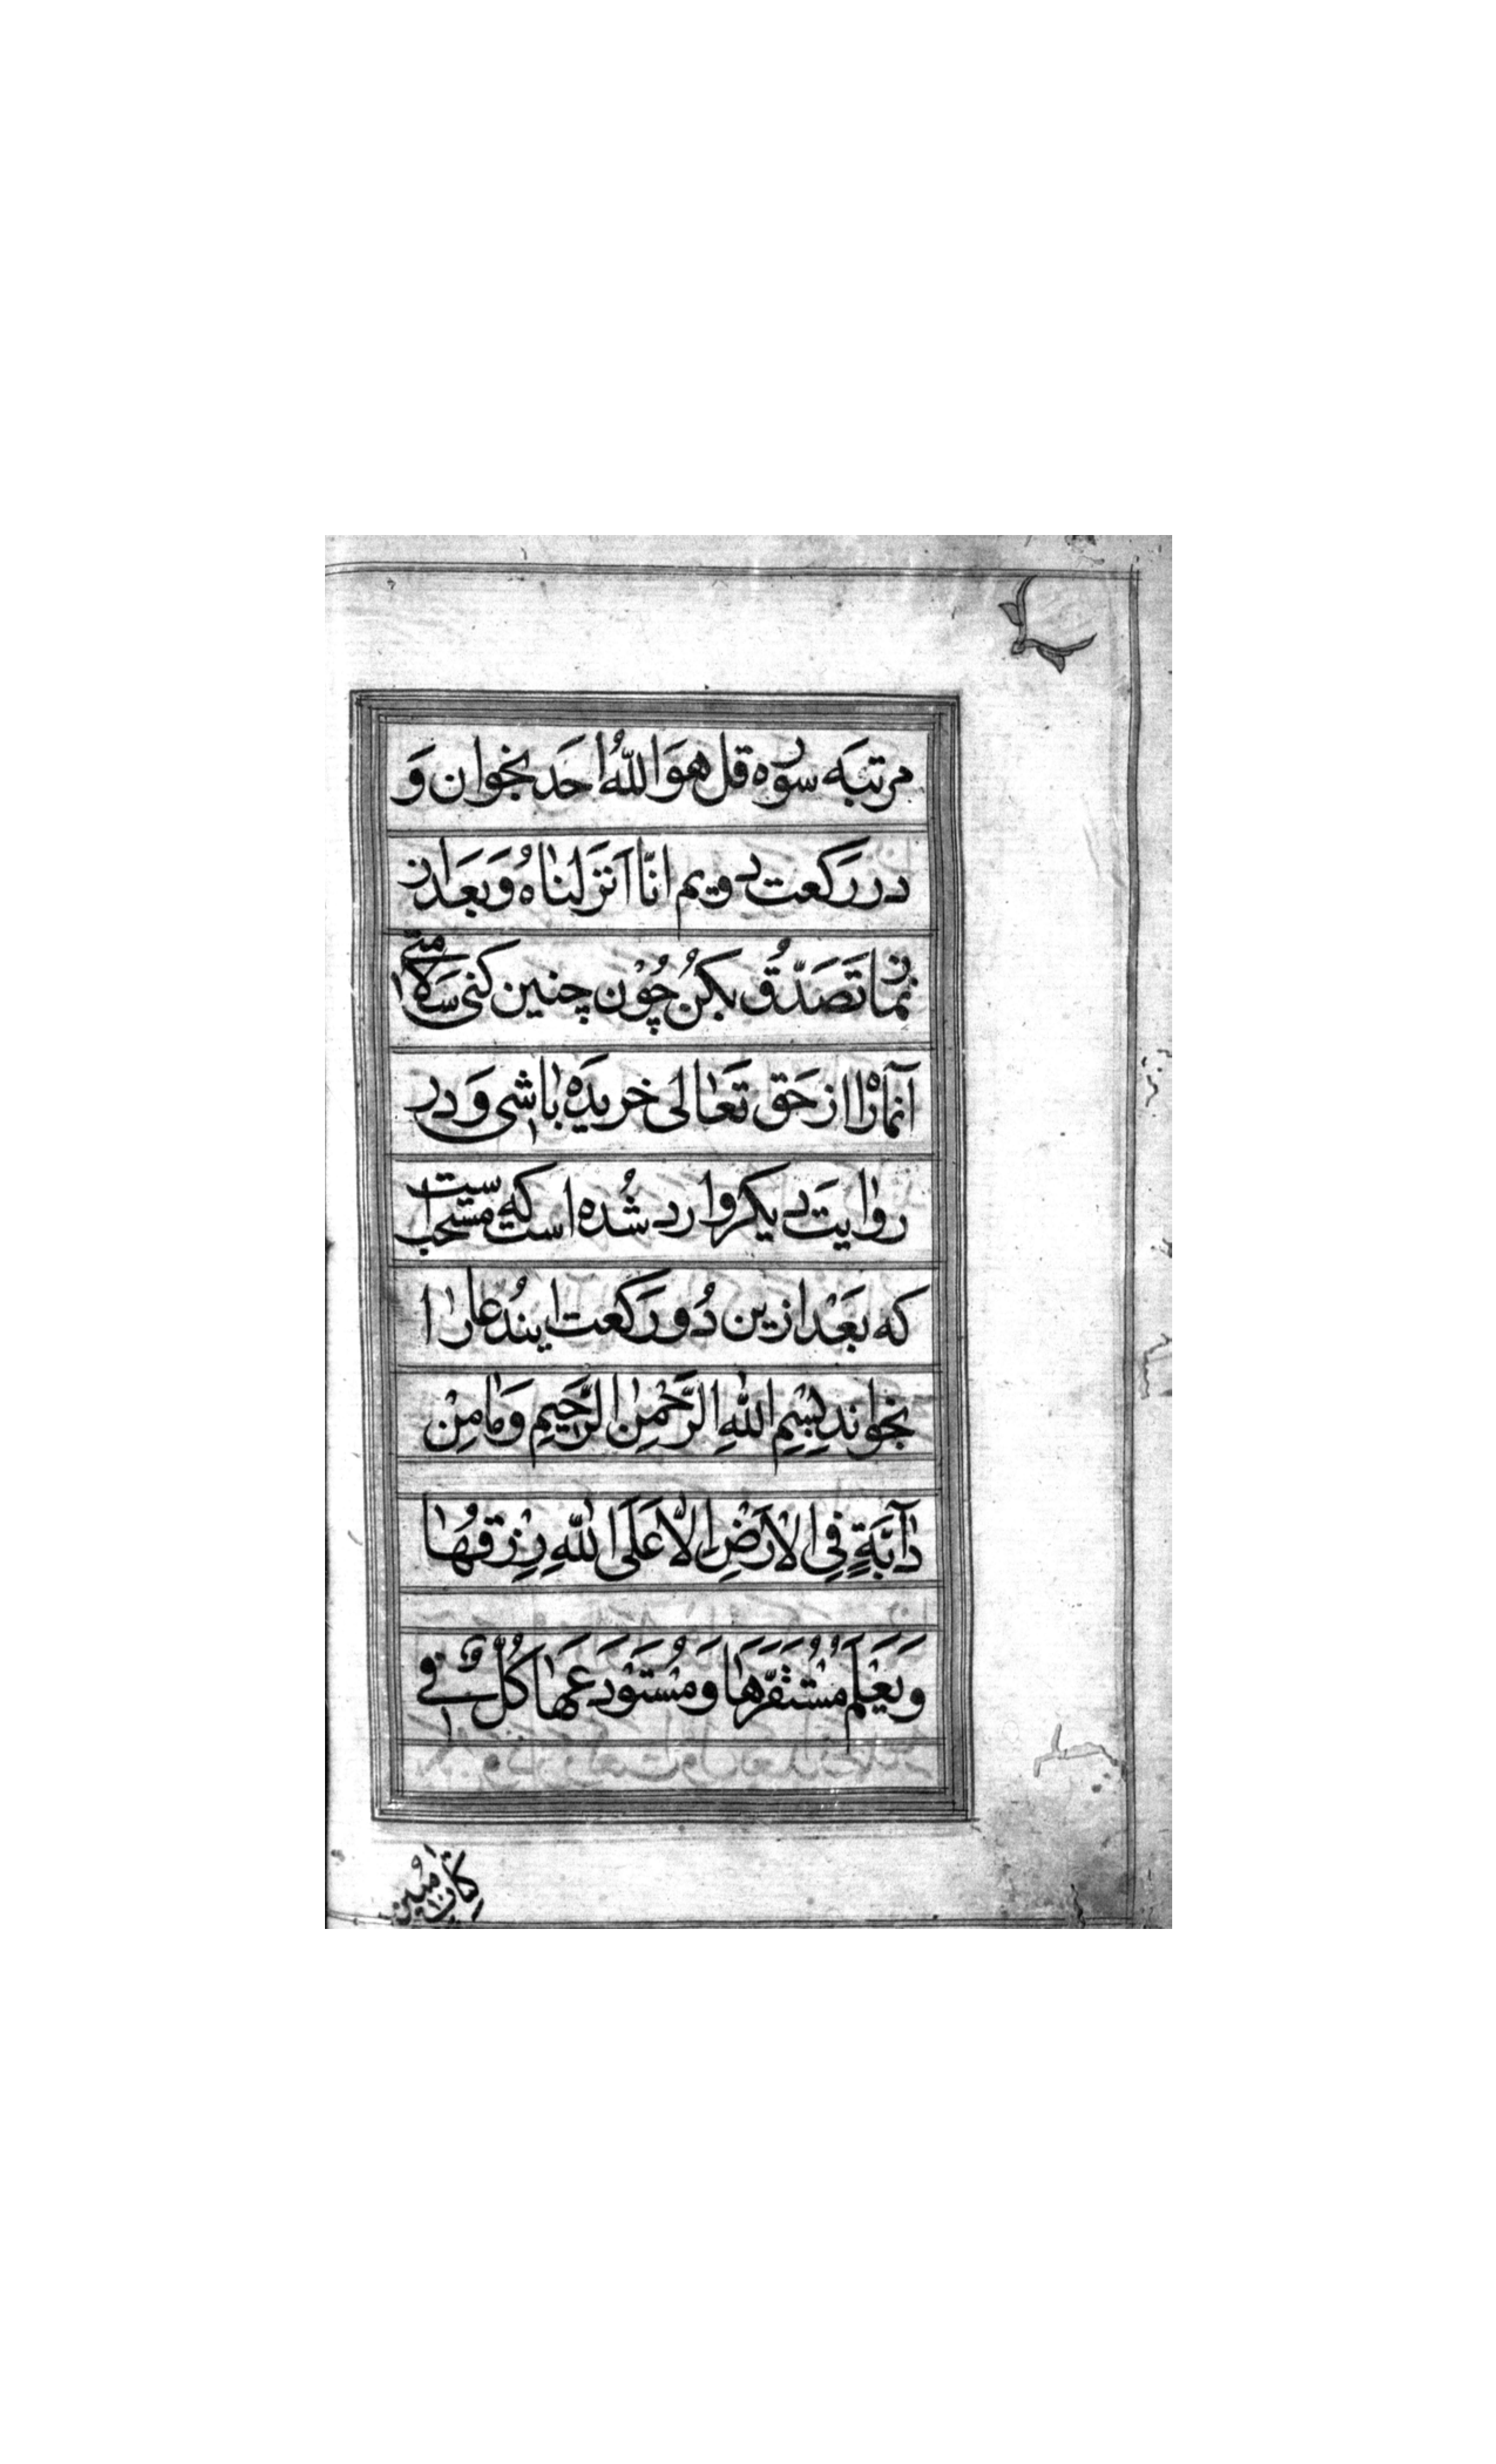 مرتبَه سوُره قل هوَاللهُ احَد بخوان وَ
در رَكعت دويم انّا اَنزَلناهُ وَبعَد از
نماز تَصَدّقُ بكنُ چُوْن چنين كنى سَلامتى
آنماهْ را از حَق تَعٰالى خريدَه باشى وَ در
روٰايَت ديكر وارد شُده است كه مستحب است
كه بَعْد از ين دُو رَكعت اين دُعا رٰا
بخواند بِسْمِ اللهِ الرَّحْمٰنِ الرَّحيِمِ وَمٰا مِنْ
دٰآبَّةٍ فِى الْاَرْضِ اِلّا عَلَى اللهِ رِزْقُهٰا
وَ يَعْلَمُ مُسْتَقَرَّهٰا وَ مُسْتَوْدَعَهٰا كُلٌّ فِي
كِتٰابٍ مُبين